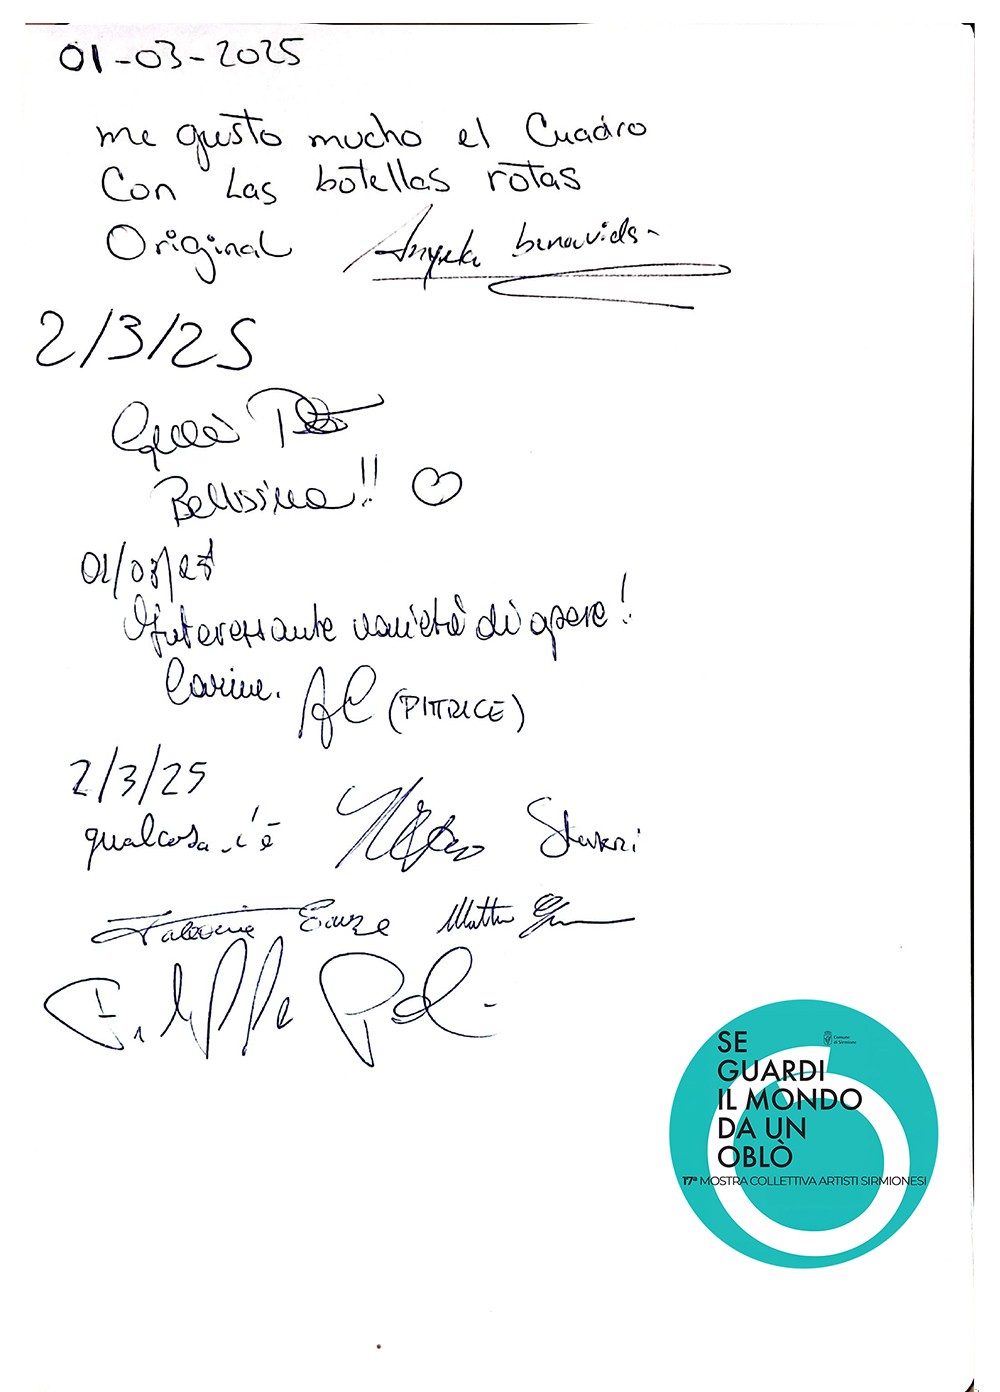 01-03-2025
me gusto mucho el Cuadro
Con Las botellas rotas
Original Angela benavides
2/3/25
Bellissima!! ♡
01/03/25
Interessante varietà di opere!
Carine. AC (PITTRICE)
2/3/25
qualcosa c'è
Matteo
Filippo
SE
GUARDI
IL MONDO
DA UN
OBLÒ
Comune
di Sirmione
17ª MOSTRA COLLETTIVA ARTISTI SIRMIONESI